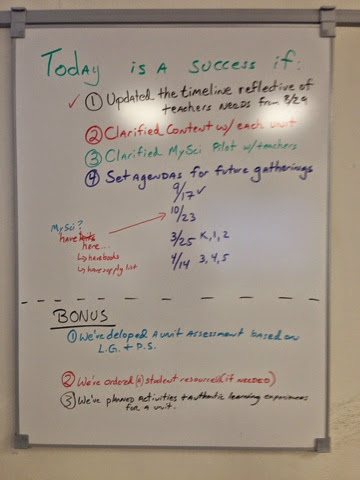 Today is a success if:
✓ ① Updated the timeline reflective of
teachers needs from 8/29
② Clarified Content w/ each unit
③ Clarified MySci Pilot w/ teachers
④ Set agendas for future gatherings
9/17 ✓
10/23
3/25 K, 1, 2
4/14 3, 4, 5
MySci?
have kits
here...
↳ have books
↳ have supply list
BONUS
① We've deloped a unit assessment based on
L.G. + P.S.
② We're ordered (#) student resources (if NEEDED)
③ We've planned activities + authentic learning experiences
for a unit.